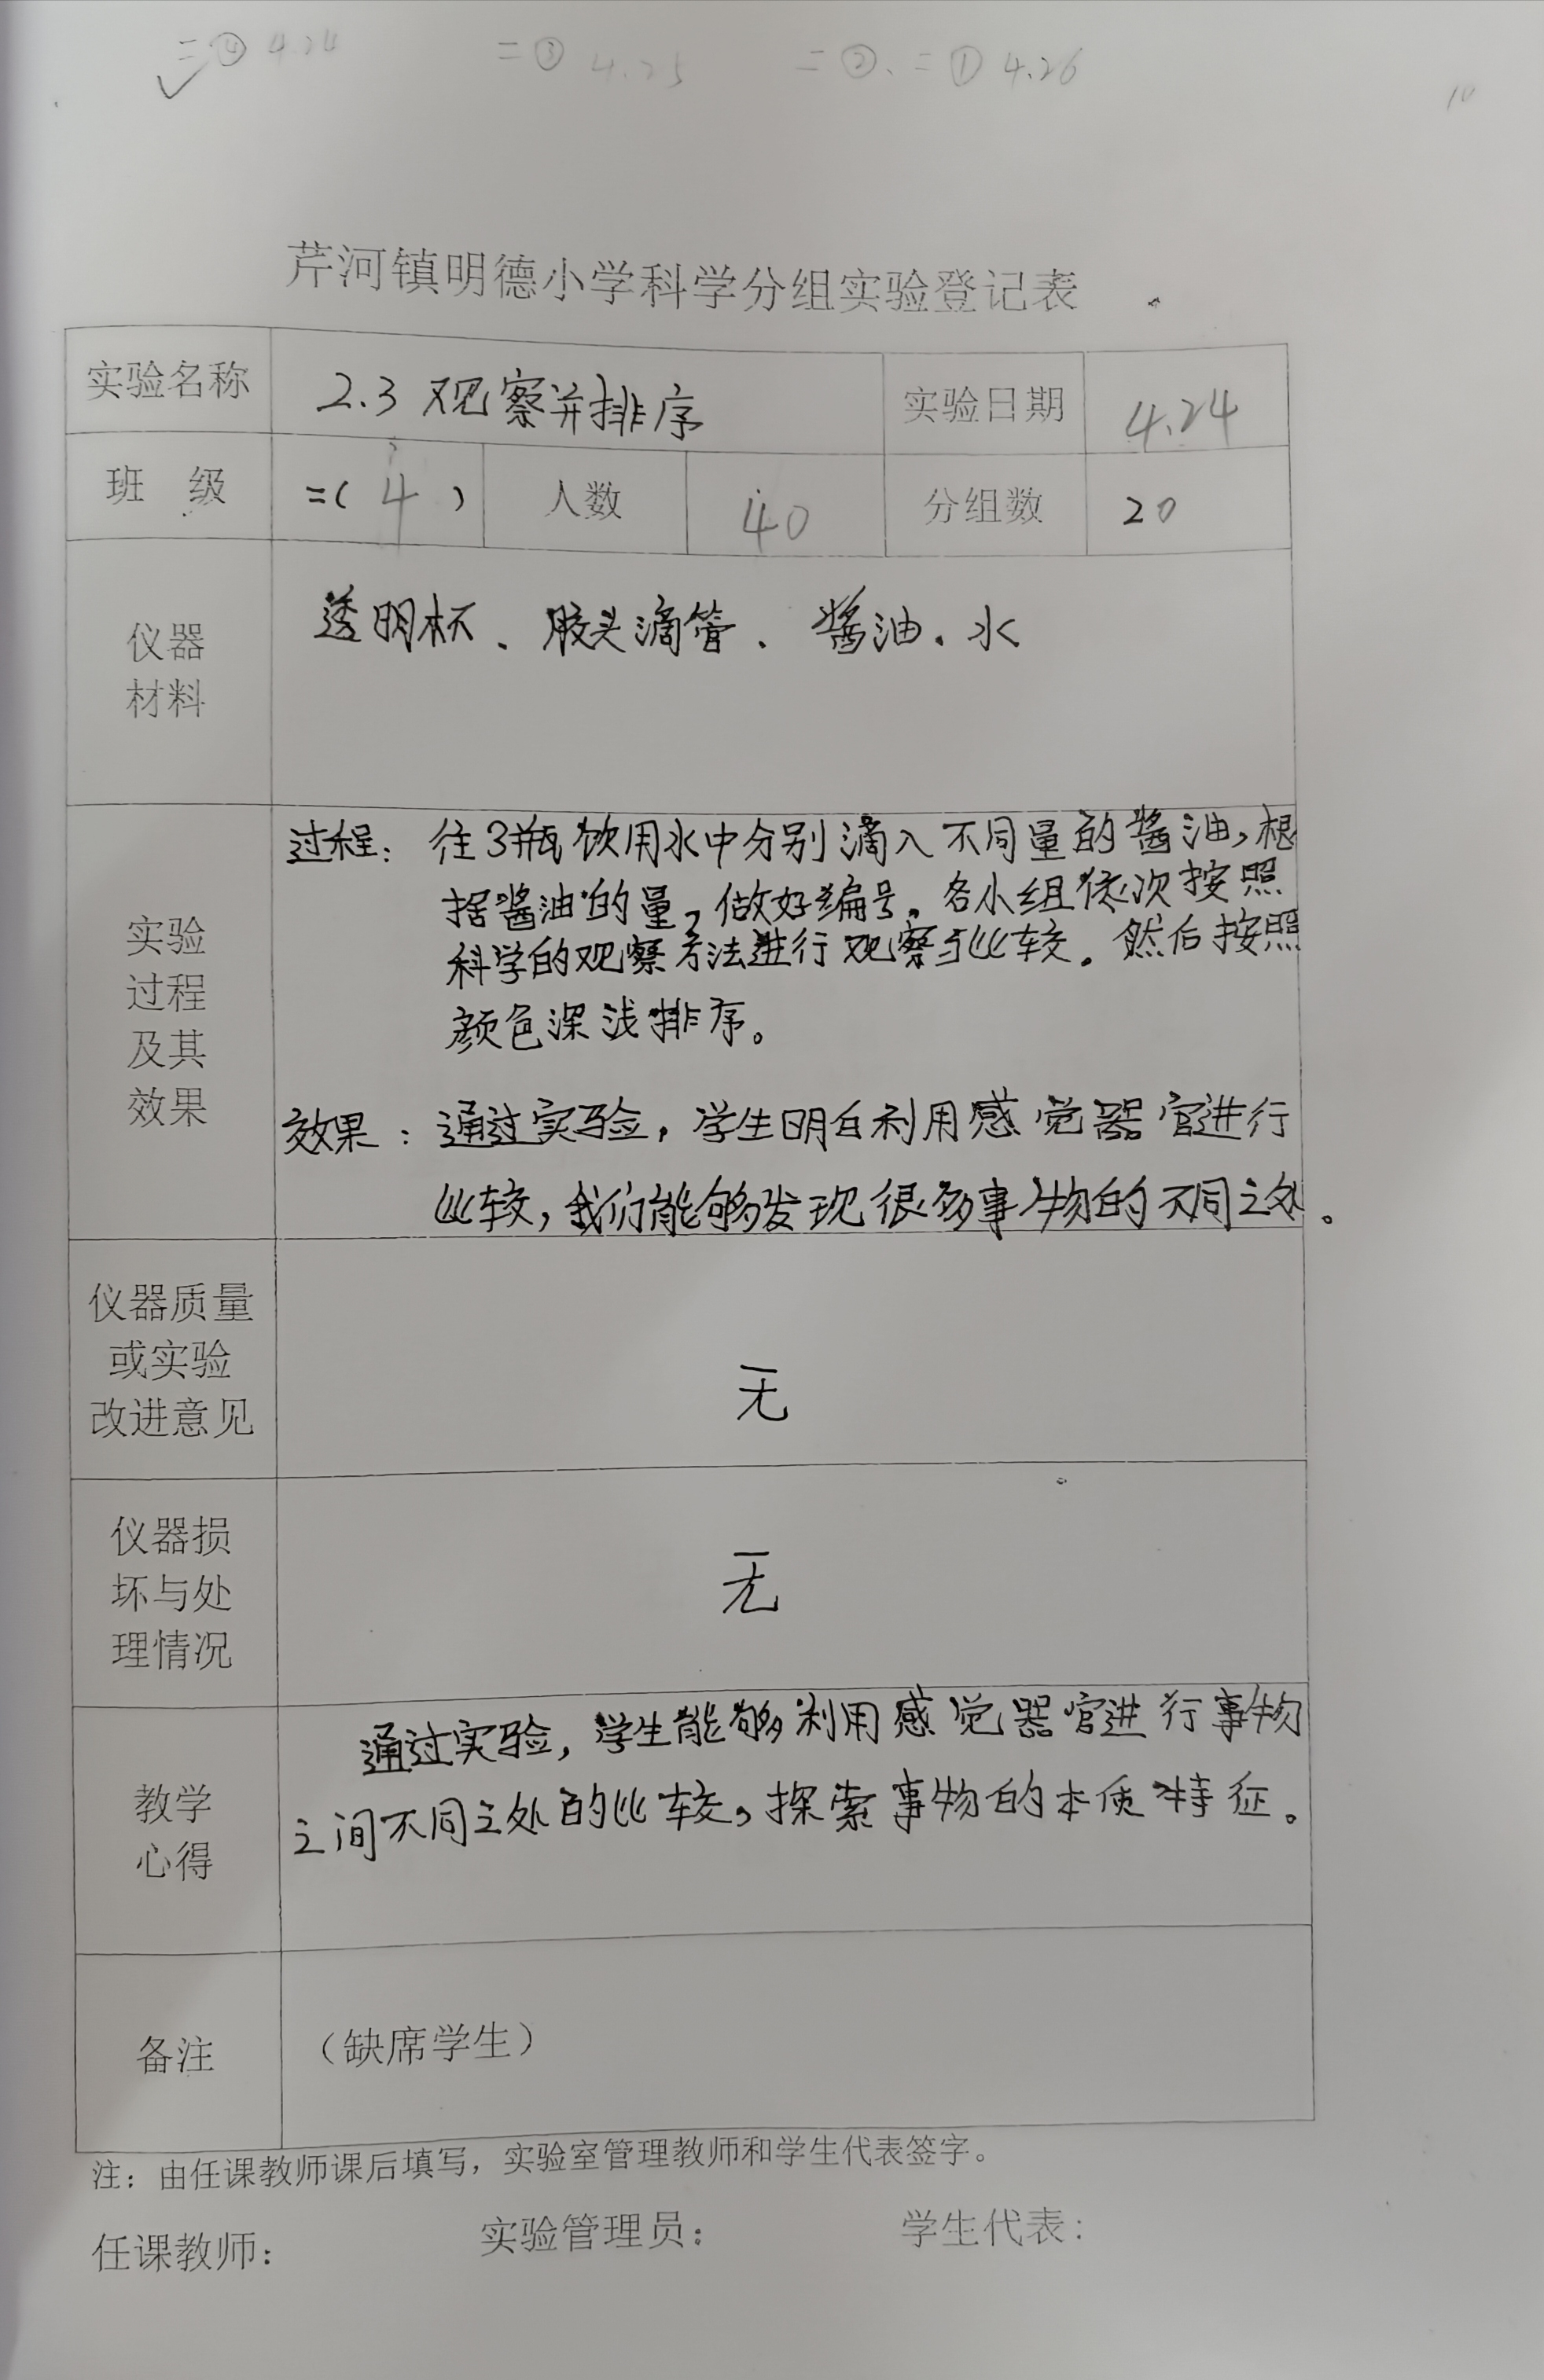 二④ 4.24 二③ 4.25 二②、二① 4.26
10
芹河镇明德小学科学分组实验登记表
实验名称 2.3 观察并排序 实验日期 4.24
班 级 二(4) 人数 40 分组数 20
仪器
材料
透明杯、胶头滴管、酱油、水
实验
过程
及其
效果
过程：往3瓶饮用水中分别滴入不同量的酱油，根
据酱油的量，做好编号。各小组依次按照
科学的观察方法进行观察与比较。然后按照
颜色深浅排序。
效果：通过实验，学生明白利用感觉器官进行
比较，我们能够发现很多事物的不同之处。
仪器质量
或实验
改进意见
无
仪器损
坏与处
理情况
无
教学
心得
通过实验，学生能够利用感觉器官进行事物
之间不同之处的比较，探索事物的本质特征。
备注 （缺席学生）
注：由任课教师课后填写，实验室管理教师和学生代表签字。
任课教师： 实验管理员： 学生代表：